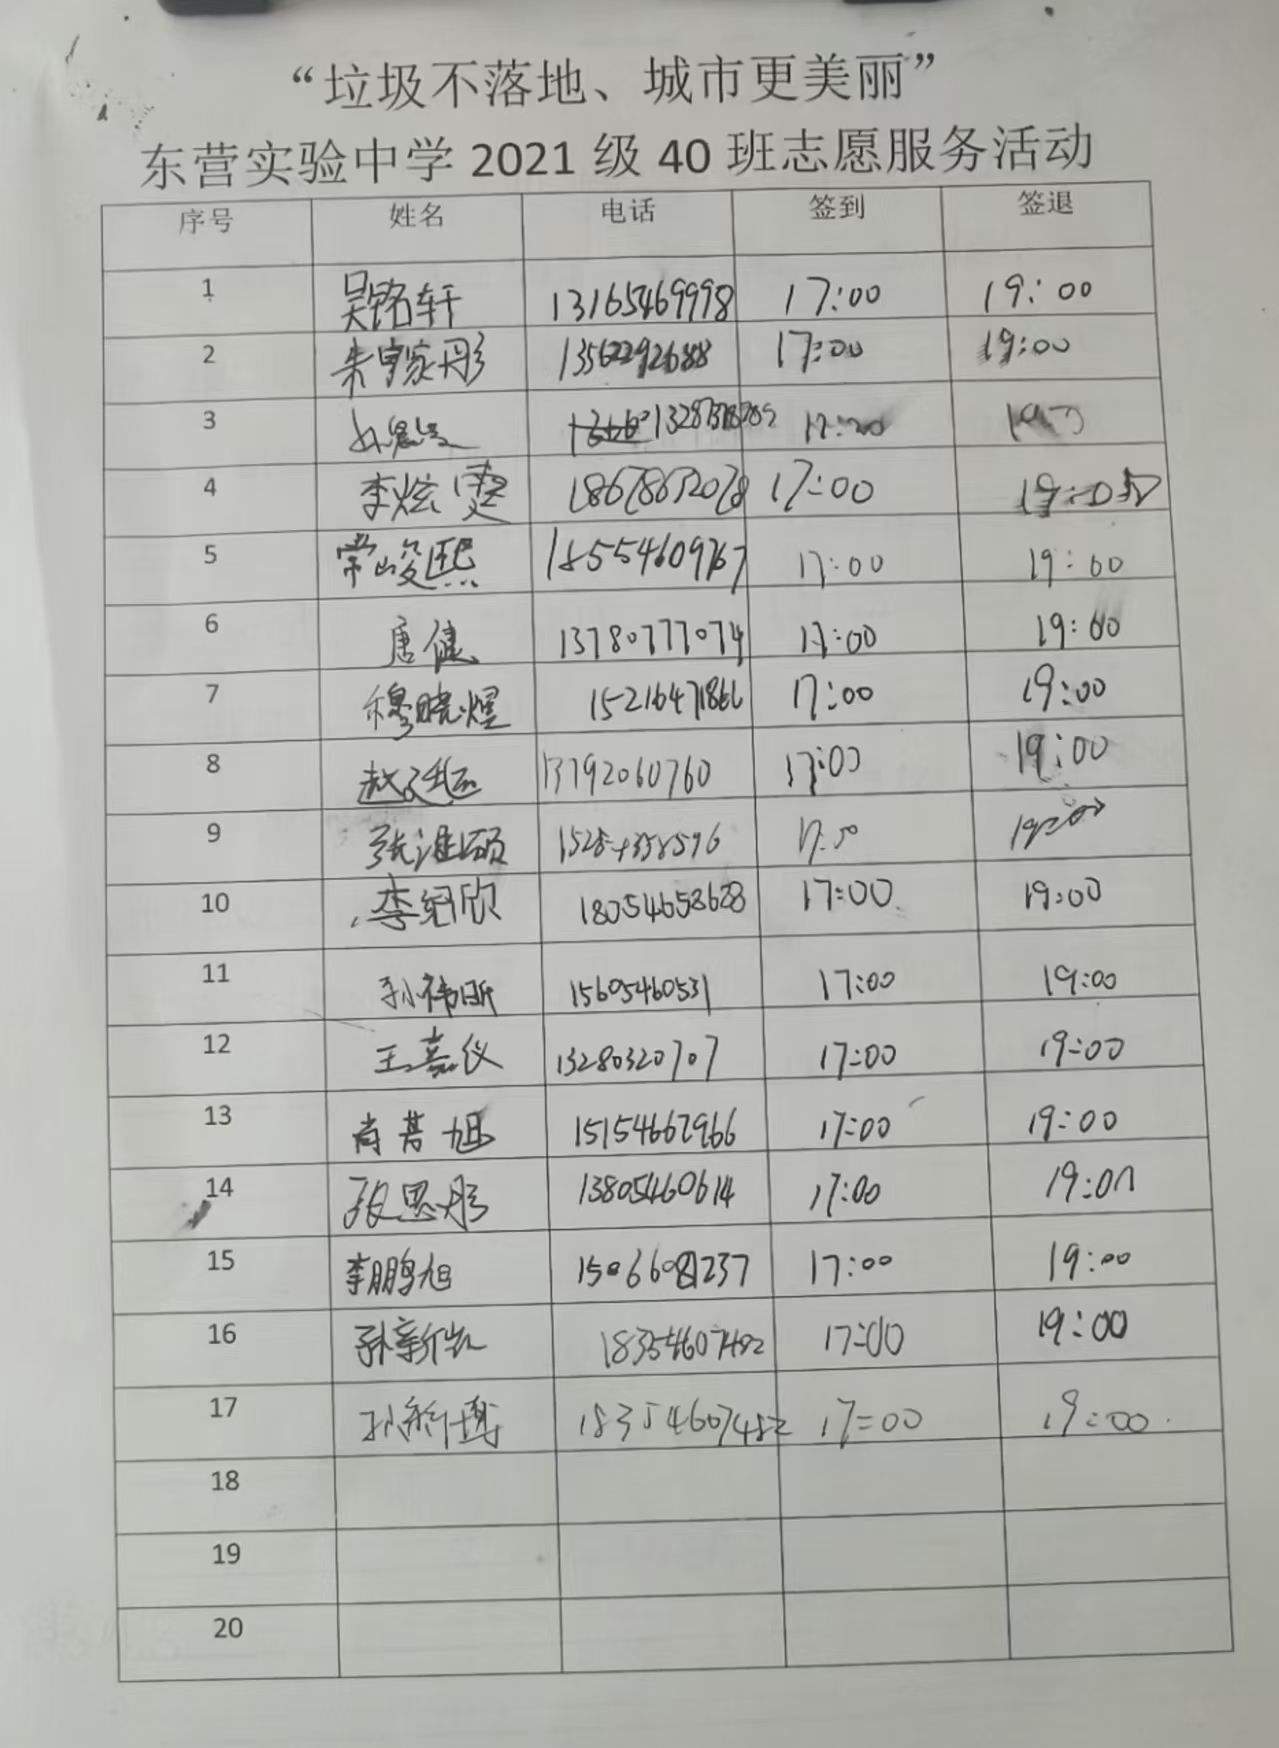 “垃圾不落地、城市更美丽”
东营实验中学 2021 级 40 班志愿服务活动
序号 姓名 电话 签到 签退
1 吴铭轩 13165469998 17:00 19:00
2 朱家彤 13562292688 17:00 19:00
3
4 李炫雯 18678672078 17:00
5 常峻熙 18554609767 17:00 19:00
6 唐健 13780777074 17:00 19:00
7 穆晓煜 15216471866 17:00 19:00
8 赵廷 13792060760 17:00 19:00
9 张淮硕
10 李冠欣 18054658628 17:00 19:00
11 孙祎昕 15605460531 17:00 19:00
12 王嘉仪 13280320707 17:00 19:00
13 尚菁旭 15154662966 17:00 19:00
14 张恩彤 13805460614 17:00 19:00
15 李鹏旭 17:00 19:00
16 孙新凯 18354607482 17:00 19:00
17 孙新博 18354607482 17=00 19:00
18
19
20